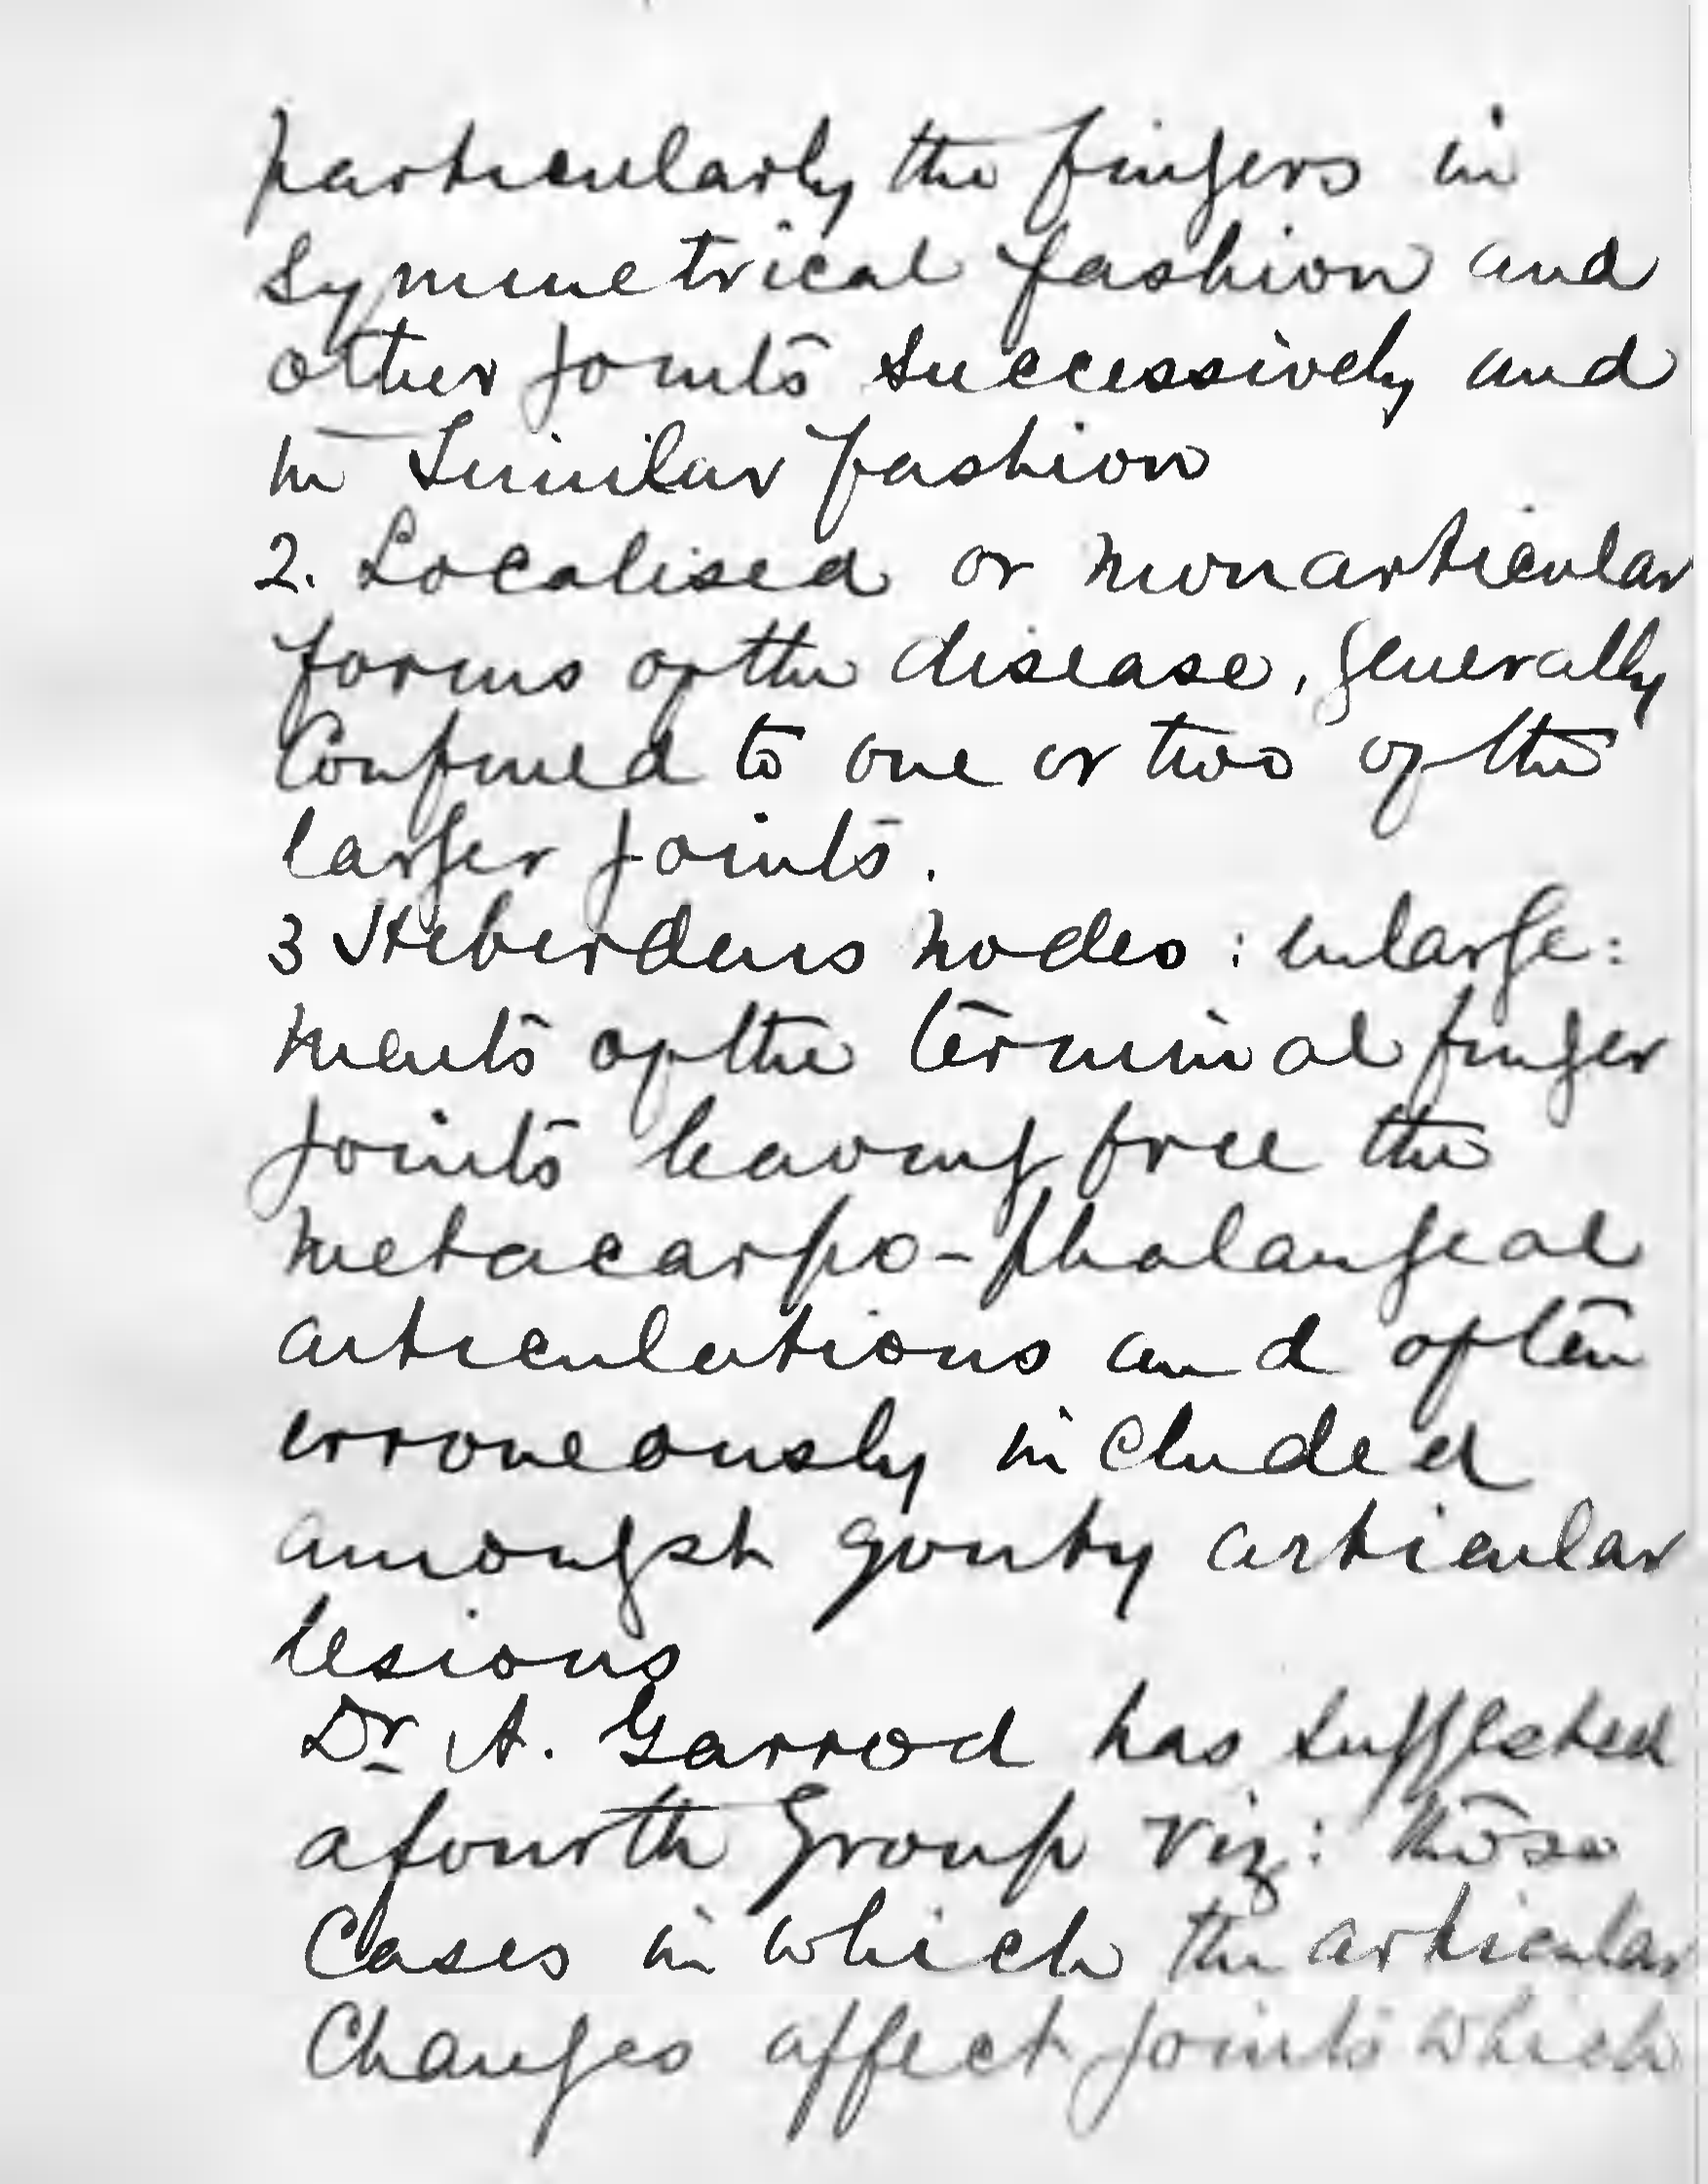 particularly the fingers in
symmetrical fashion and
other joints successively and
in similar fashion
2. Localised or monarticular
forms of the disease, generally
confined to one or two of the
larger joints.
3 Heberdens nodes : enlarge:
ments of the terminal finger
joints leaving free the
metacarpo-phalangeal
articulations and often
erroneously included
amongst gouty articular
lesions
Dr A. Garrod has suggested
a fourth Group viz: those
Cases in which the articular
Changes affect joints which